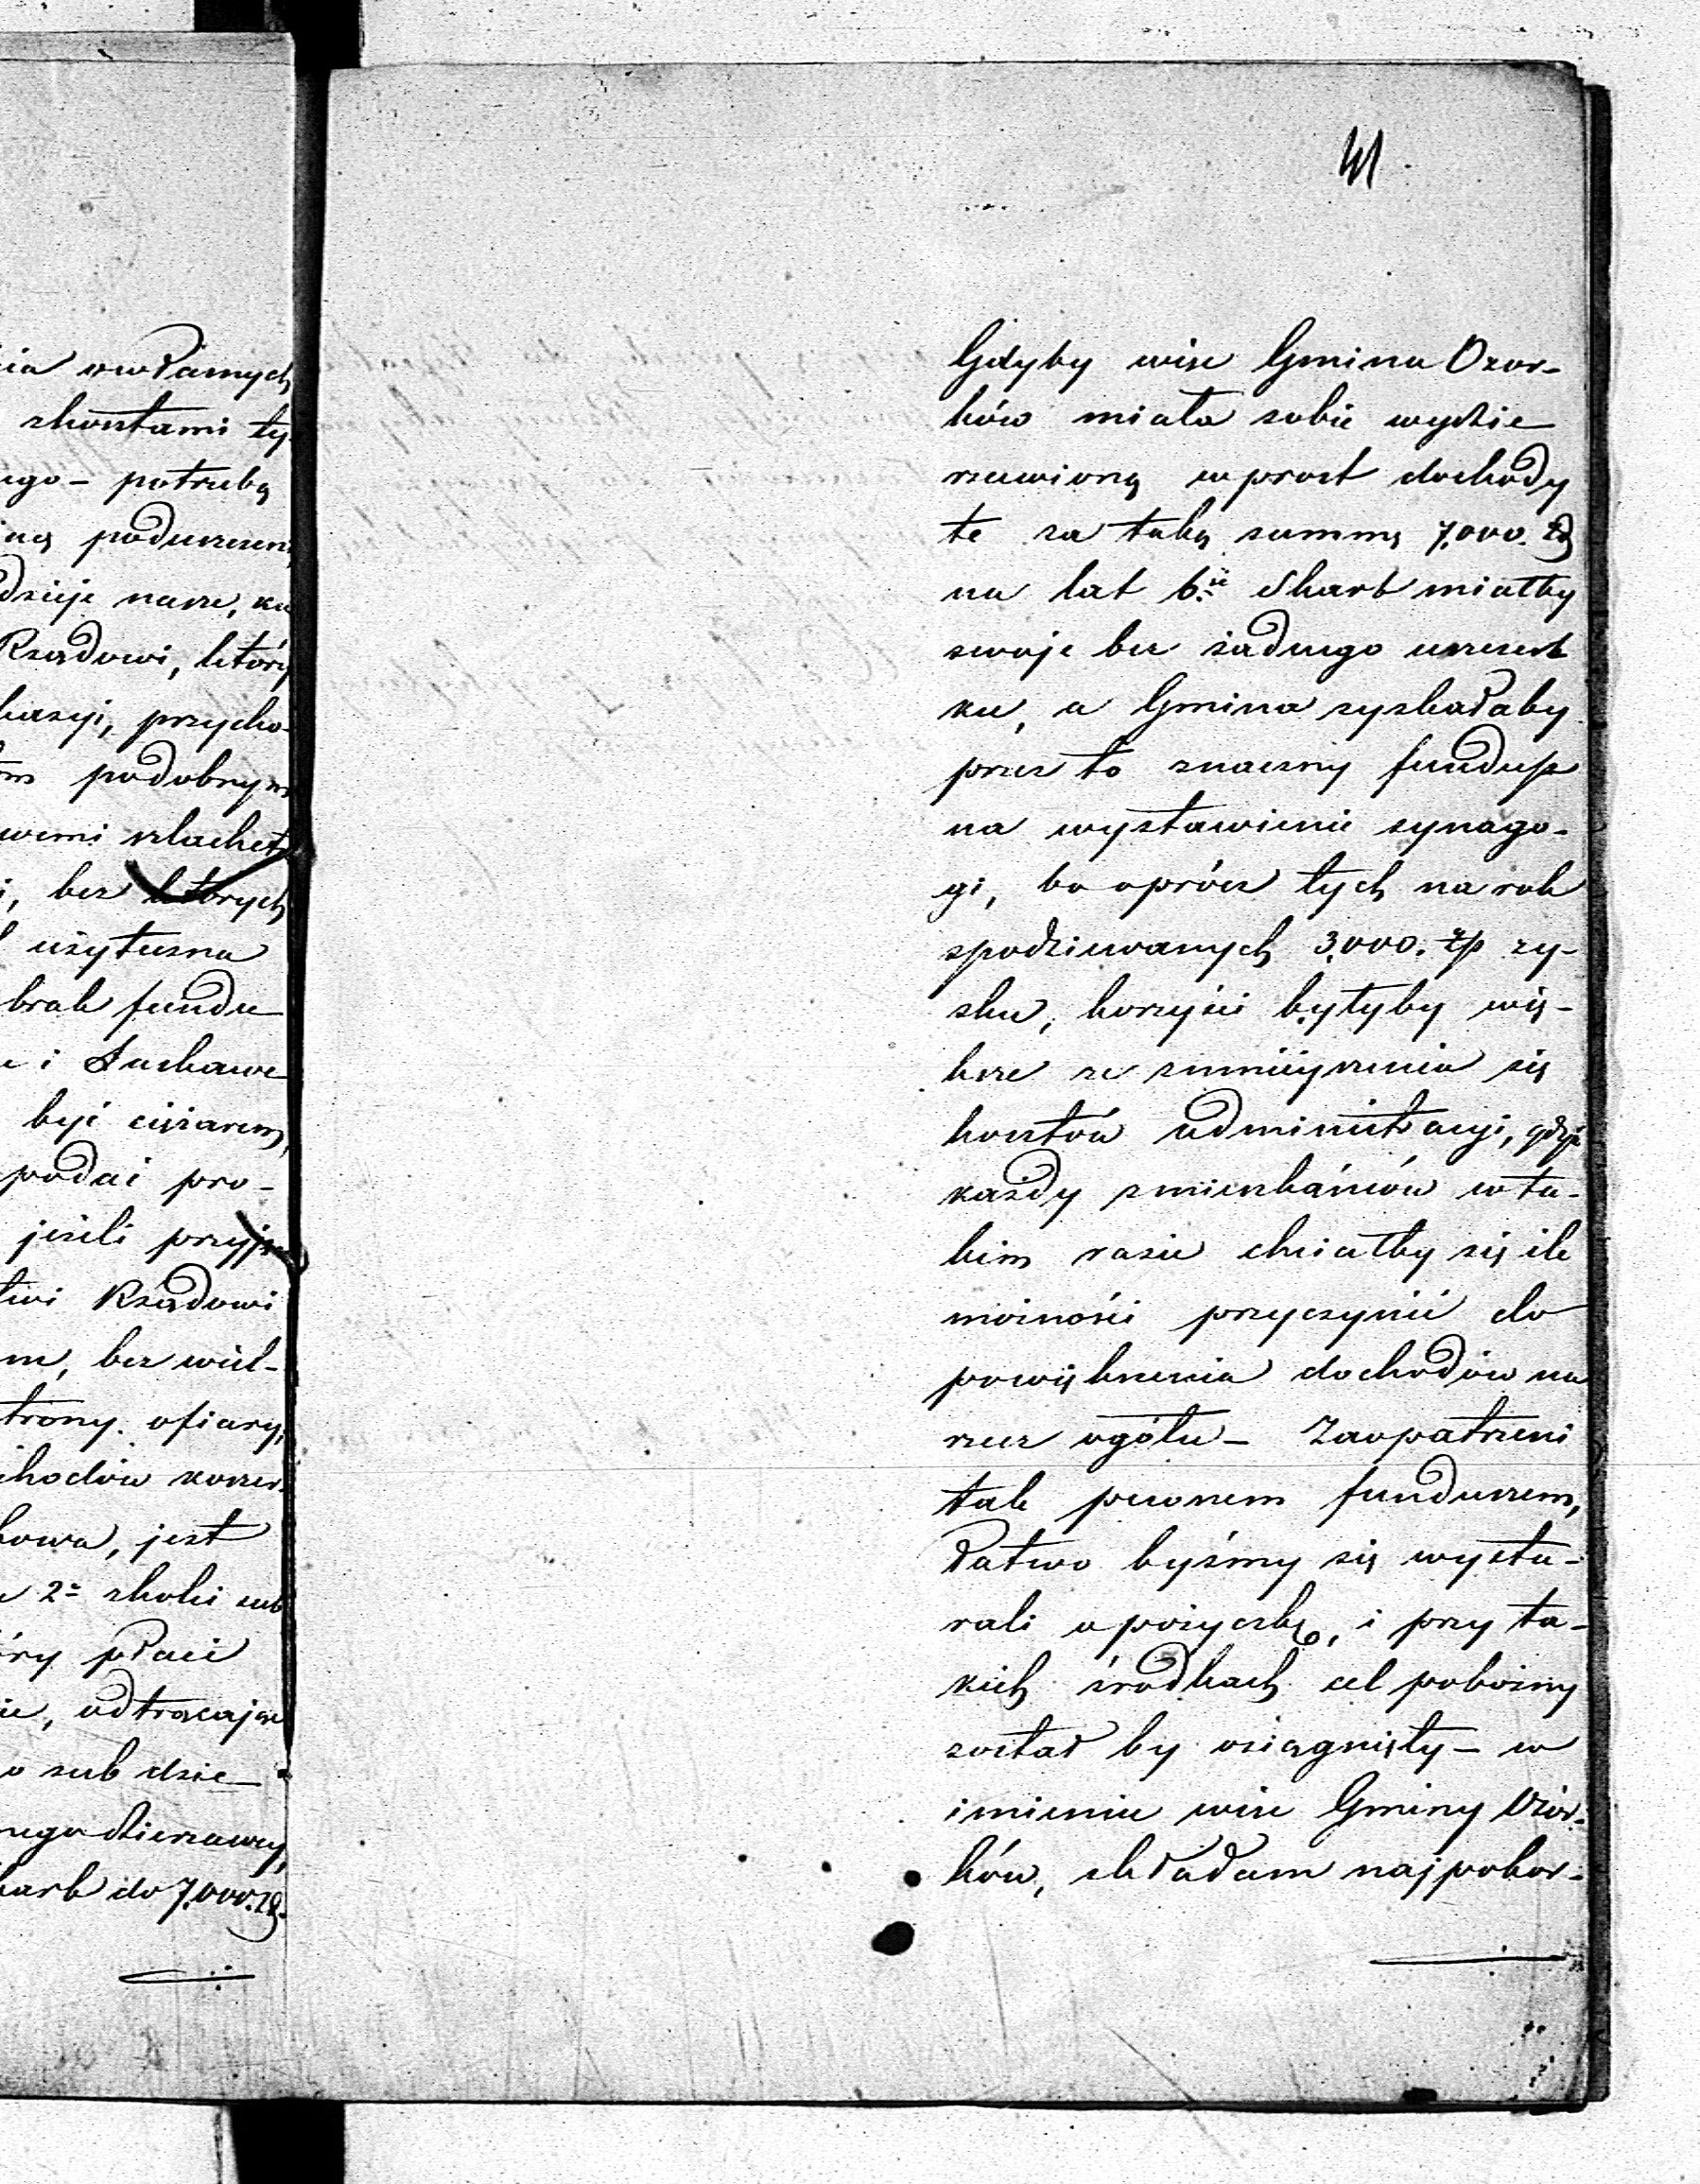 ia wwłamych
skoształmi ty
ego – potrzebą
ną poduszczen
dzieje nasze, ku
Rządowi, który
kazyi, przycho-
podobnym
wemi szlachet
i, bez których
użyteczna
brak fundu
i Suchawe
być ciężarem,
podać pro-
jeżeli przyj
Rządowi
m, bez wiel-
strony ofiary,
chodów koszer.
kowa, jest
2= szkoli sub
óry płaci
ie, odtrącając
o sub dzie
nego dzierzawcy,
karb do 7,000. zł.
41
Gdyby wisc Gmina Ozor-
ków miała sobie wydzie
rzawioną wprost dochody
te za taką summę 7,000. Zł
na lat 6. Skarb miałby
swoje bez żadnego uszczerb
ku, a Gmina zyskałaby
przez to znaczny fundusz
na wystawienie synago-
gi, bo oprócz tych na rok
spodziewanych 3,000. złp zy-
sku, korzyści byłyby wię-
ksze ze zmniéyszenia się
kosztów administracyi, gdyż
każdy zmieszkańców w ta-
kim razie chciałby się ile
możności przyczynić do
powiększenia dochodów na
rzecz ogółu – Zaopatrzeni
tak pewnem funduszem,
łatwo byśmy się wysta-
rali o pożyczkę, i przy ta-
kich środkach cel pobożny
został by osiągnięty – w
imieniu wisc Gminy Ozor-
ków, składam najpokor-